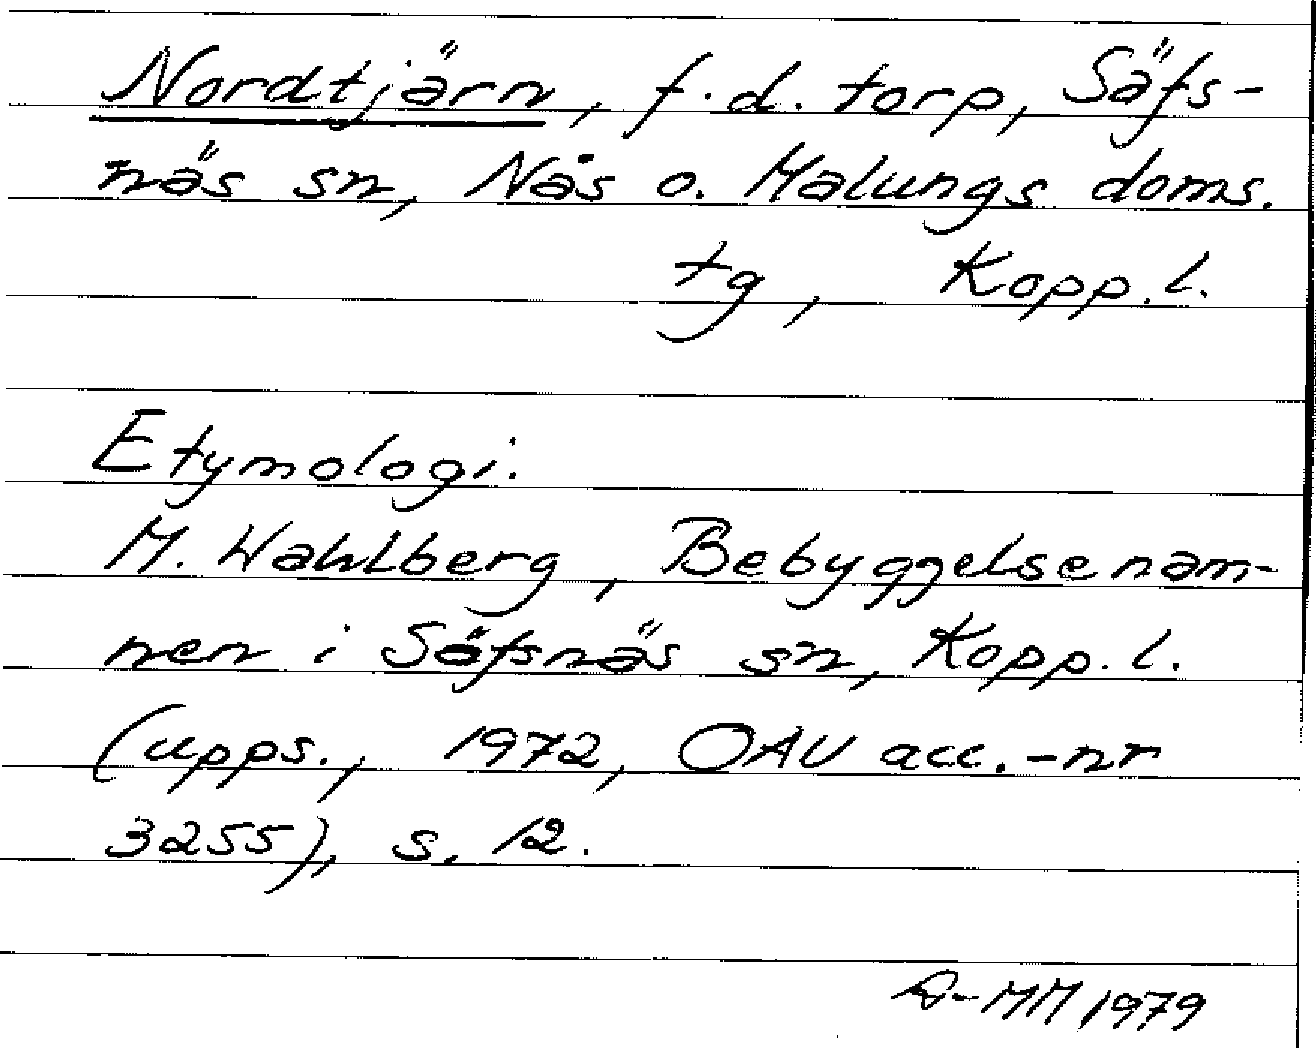 Nordtjärn, f.d. torp, Säfs-
näs sn, Nås o. Malungs doms.
tg, Kopp.l.
Etymologi.
M. Wahlberg, Bebyggelsenam-
nen i Säfsnäs sn, Kopp.l.
(upps., 1972, OAU acc.-nr
3255), s. 12.
A-MM 1979